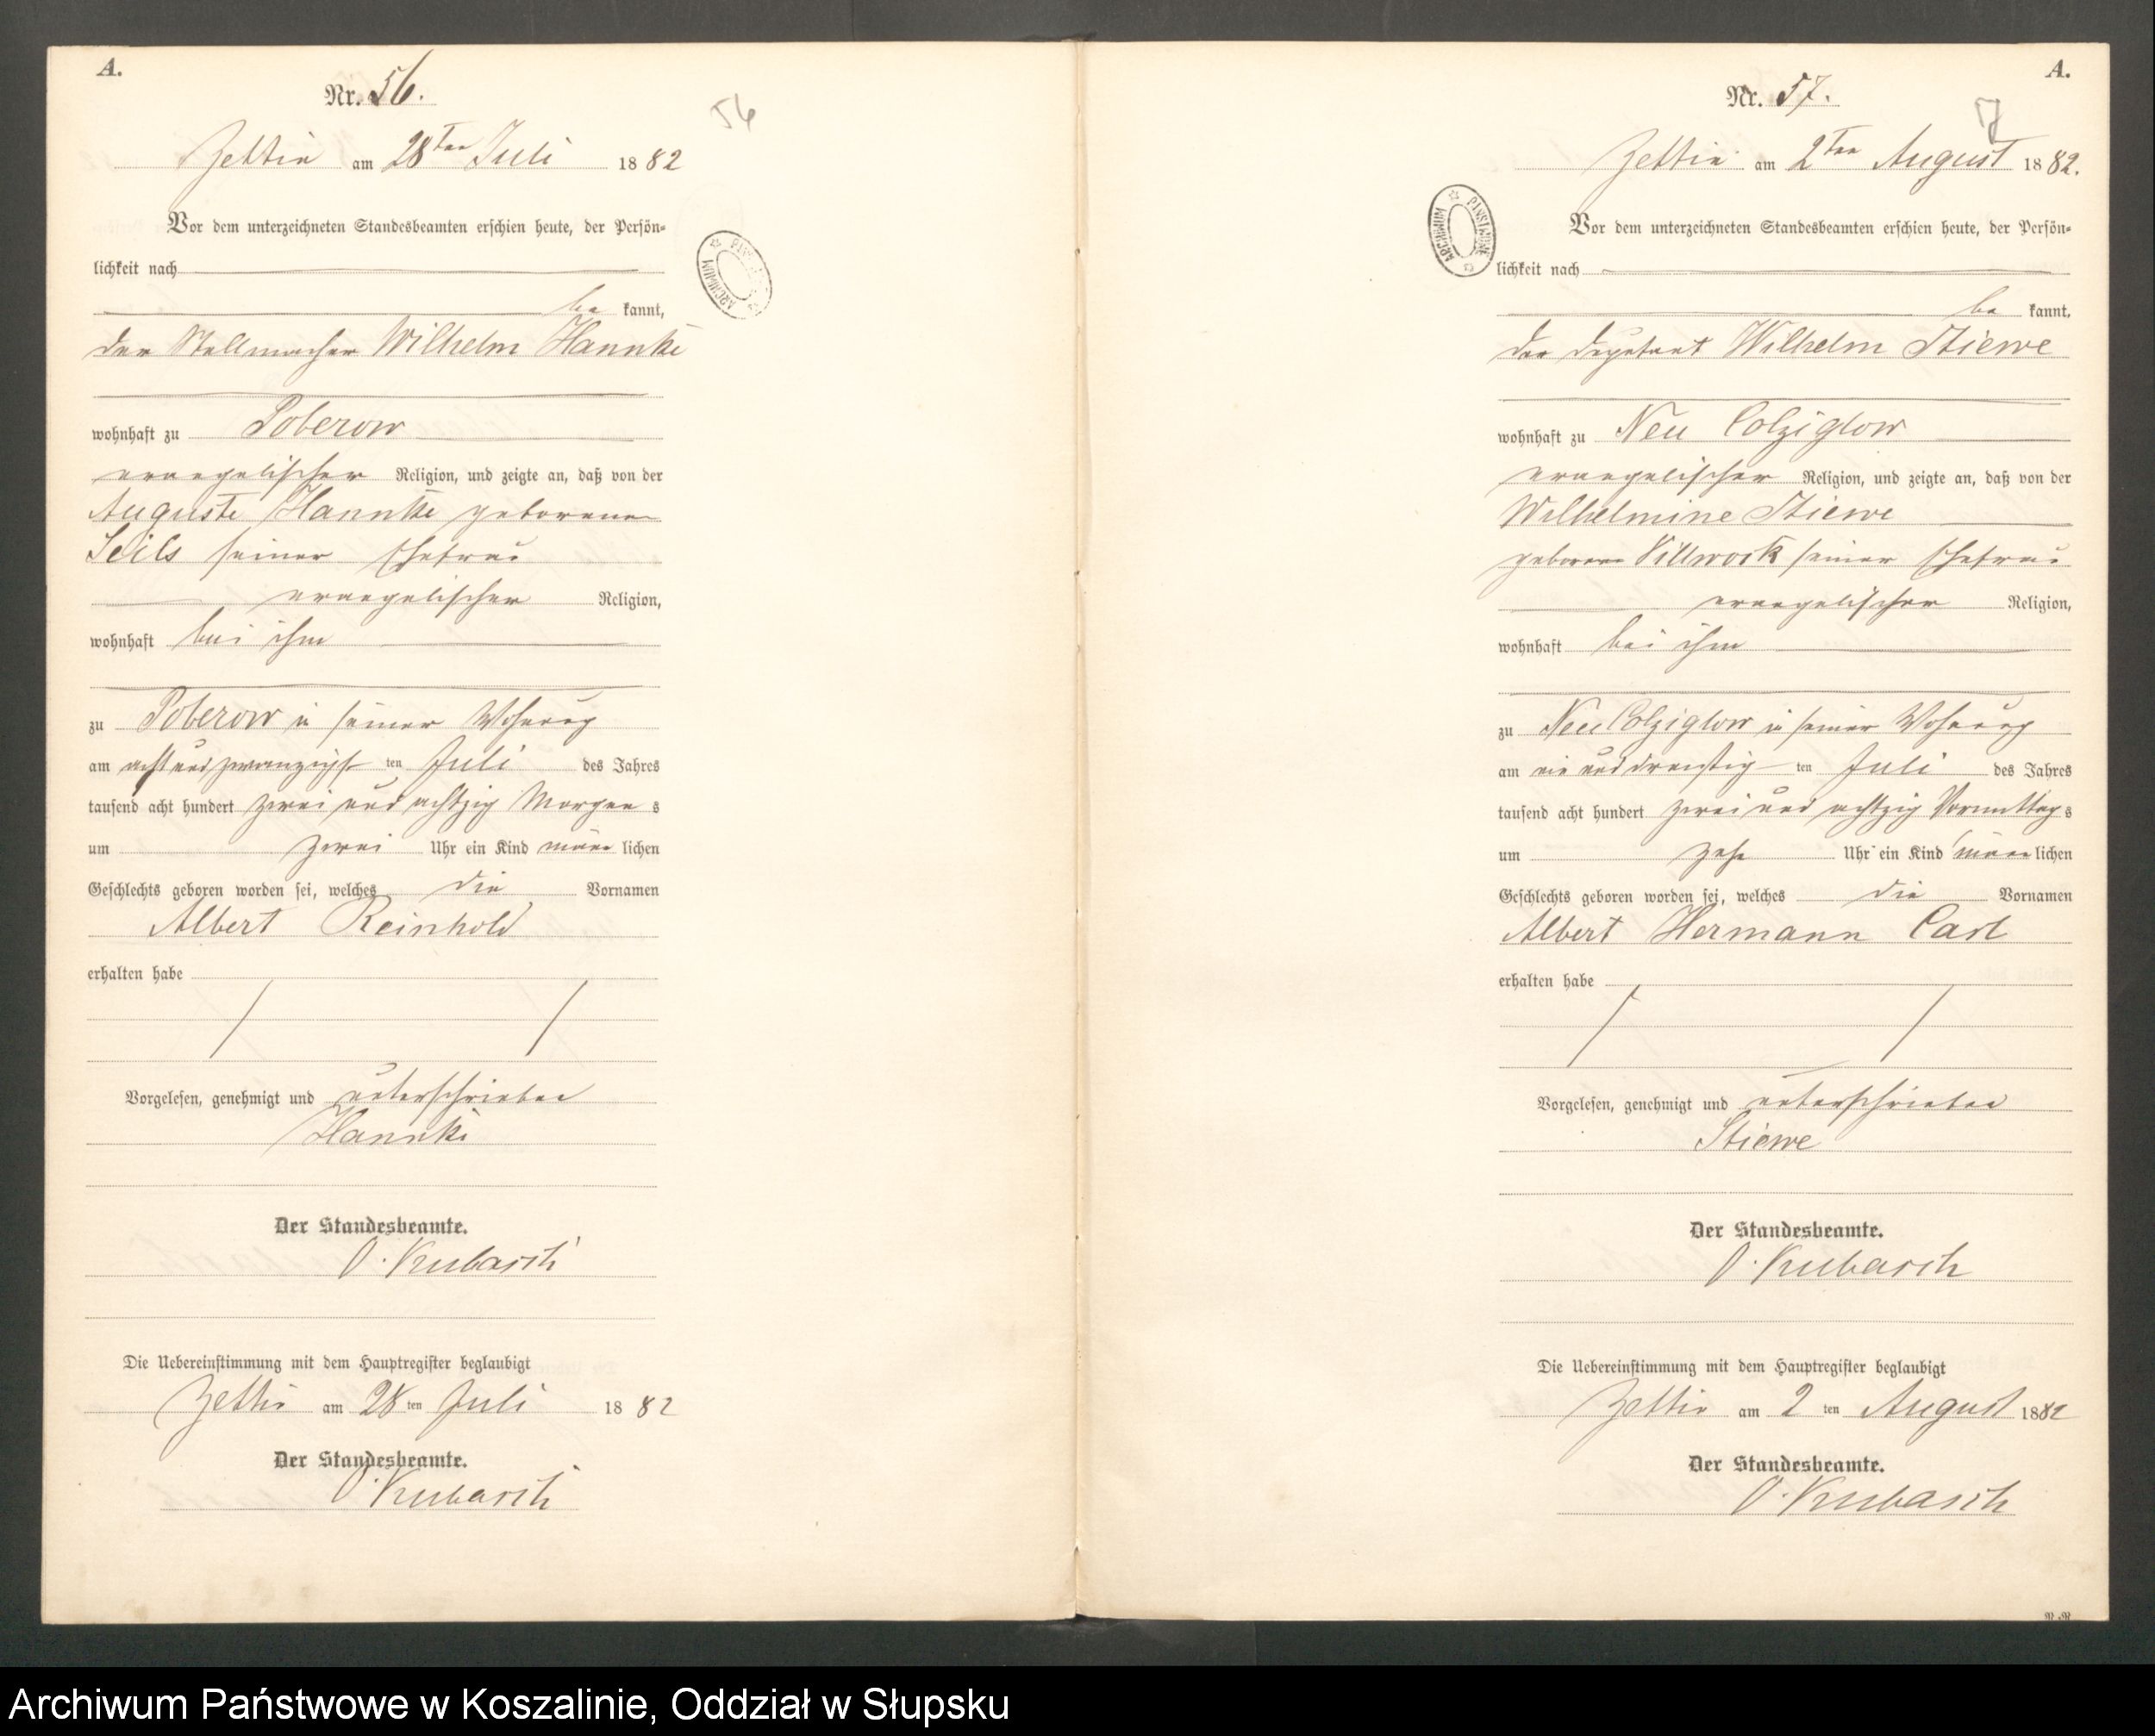 A.
Nr. 56.
56
Zettin am 28ten Juli 1882
Vor dem unterzeichneten Standesbeamten erschien heute, der Persön-
lichkeit nach
be kannt,
der Stellmacher Wilhelm Hannke
wohnhaft zu Poberow
evangelischer Religion, und zeigte an, daß von der
Auguste Hannke geborenen
Seils seiner Ehefrau
evangelischer Religion,
wohnhaft bei ihm
zu Poberow in seiner Wohnung
am acht und zwanzigst ten Juli des Jahres
tausend acht hundert zwei und achtzig Morgen s
um zwei Uhr ein Kind männ lichen
Geschlechts geboren worden sei, welches die Vornamen
Albert Reinhold
erhalten habe
Vorgelesen, genehmigt und unterschrieben
Hannke
Der Standesbeamte.
O. Kubasch
Die Uebereinstimmung mit dem Hauptregister beglaubigt
Zettin am 28 ten Juli 1882
Der Standesbeamte.
O. Kubasch
ARCHIWUM PAŃSTWOWE
A.
Nr. 57.
57
Zettin am 2ten August 1882.
Vor dem unterzeichneten Standesbeamten erschien heute, der Persön-
lichkeit nach
be kannt,
der Deputant Wilhelm Stiewe
wohnhaft zu Neu Colziglow
evangelischer Religion, und zeigte an, daß von der
Wilhelmine Stiewe
geborenen Villwock seiner Ehefrau
evangelischer Religion,
wohnhaft bei ihm
zu Neu Colziglow in seiner Wohnung
am ein und dreißig ten Juli des Jahres
tausend acht hundert zwei und achtzig Vormittag s
um zehn Uhr ein Kind männ lichen
Geschlechts geboren worden sei, welches die Vornamen
Albert Hermann Carl
erhalten habe
Vorgelesen, genehmigt und unterschrieben
Stiewe
Der Standesbeamte.
O. Kubasch
Die Uebereinstimmung mit dem Hauptregister beglaubigt
Zettin am 2 ten August 1882
Der Standesbeamte.
O. Kubasch
ARCHIWUM PAŃSTWOWE
Archiwum Państwowe w Koszalinie, Oddział w Słupsku